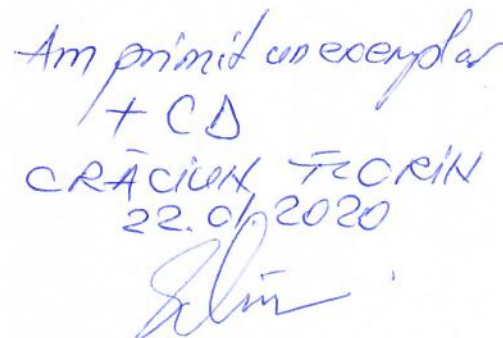 Am primit un exemplar
+ CD
CRĂCIUN FLORIN
22.01.2020